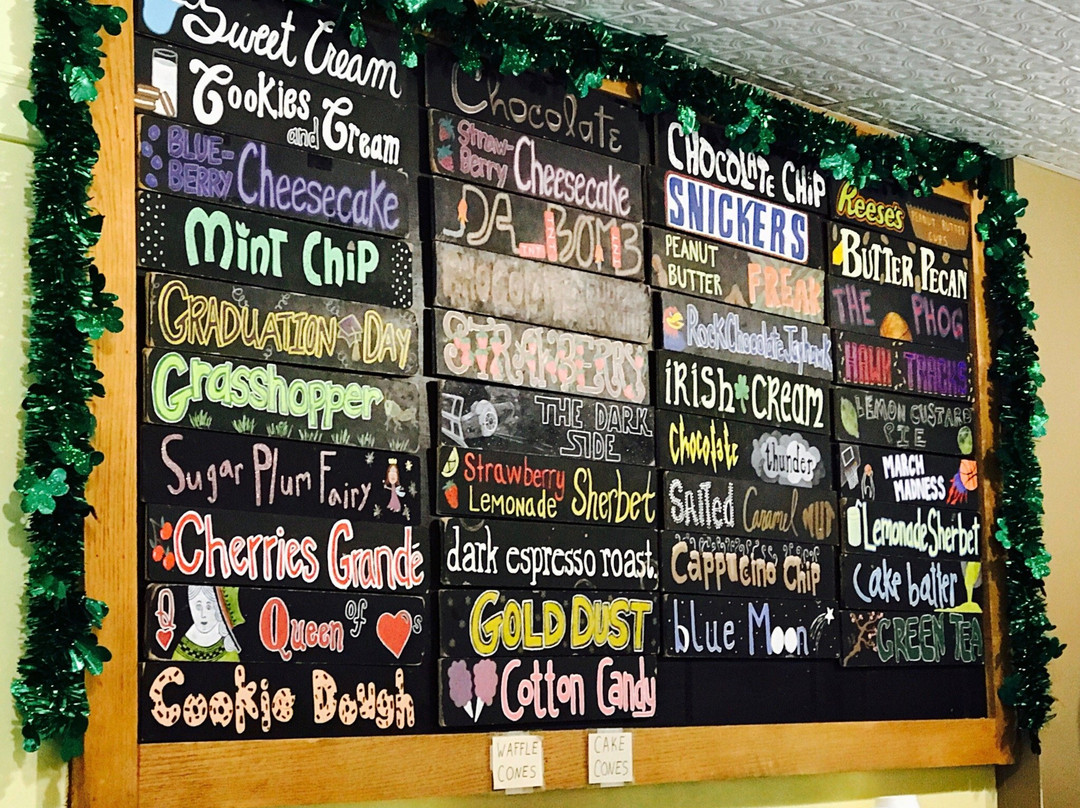 Sweet Cream
Cookies
and Cream
BLUE-
BERRY Cheesecake
Mint Chip
GRADUATION DAY
Grasshopper
Sugar Plum Fairy
Cherries Grande
Q Queen of ♥s
Cookie Dough
Chocolate
Straw-
Berry Cheesecake
DA BOMB
STRAWBERRY
THE DARK
SIDE
Strawberry
Lemonade Sherbet
dark espresso roast
GOLD DUST
Cotton Candy
CHOCOLATE CHIP
SNICKERS
PEANUT
BUTTER FREAK
Rock Chocolate Jayhawk
IRISH CREAM
Chocolate thunder
SALTED Caramel
Cappucino Chip
blue Moon
Reese's PEANUT BUTTER
CUPS
BUTTER PECAN
THE PHOG
HAWK TRACKS
LEMON CUSTARD
PIE
MARCH
MADNESS
Lemonade Sherbet
Cake batter
GREEN TEA
WAFFLE
CONES
CAKE
CONES